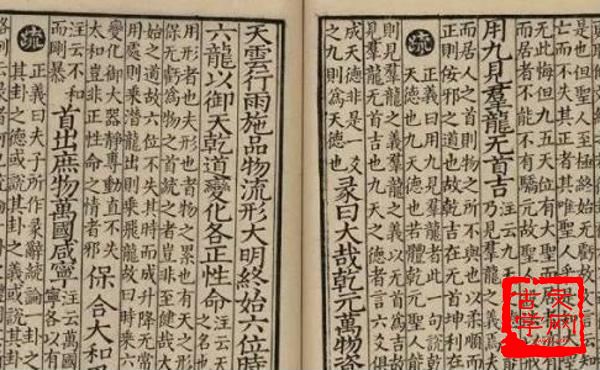 是也但聖人至極終始无虧故
亡而不失其正者其唯聖人乎是知
无此悔但九五天位有大聖而居者
而居者不能不有驕亢故聖人
用九見羣龍无首吉
注云九天
乃見羣龍之義焉
而居人之首則物之所不與也以柔順而
正則佞邪之道也故乾吉在无首坤利在
疏
正義曰用九見羣龍者此一句說乾
天德也九天德也若體乾元聖人能
則見羣龍之義羣龍之義以无首爲吉故
見羣龍无首吉也九天之德者言六爻俱
成天德非是一爻
之九則爲天德也
彖曰大哉乾元萬物資
天雲行雨施品物流形大明終始六位時
六龍以御天乾道變化各正性命
注云天
之名也
用形者也夫形也者物之累也有天之形
保无虧爲物之首統之者豈非至健哉大
始之道故六位不失其時而成升降无常
用處則乘潛龍出則乘飛龍故曰時乘六
變化御大器靜專動直不失
太和豈非正性命之情者邪
保合大和
注云不和
而剛暴
首出庶物萬國咸寧
注云萬國
寧各以有
疏
正義曰夫子所作彖辭統論一卦之
其卦之德或說其卦之義或說其卦
略例云彖者何